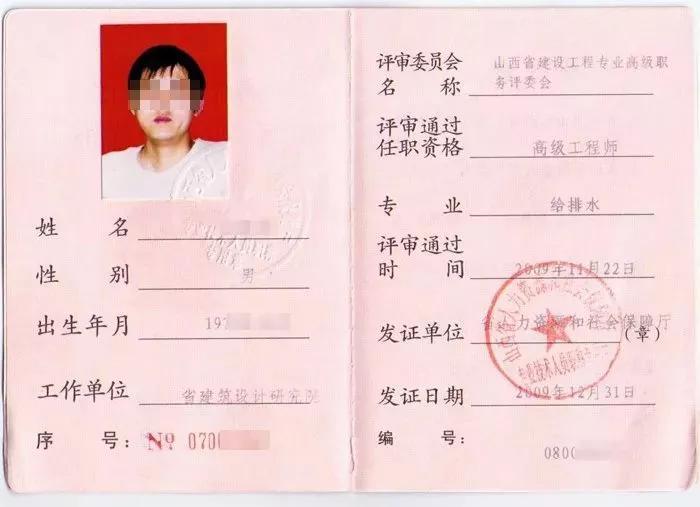 姓 名
性 别 男
出生年月 197
工作单位 省建筑设计研究院
序 号: № 070
评审委员会
名 称
山西省建设工程专业高级职
务评委会
评审通过
任职资格 高级工程师
专 业 给排水
评审通过
时 间 2009年11月22日
发证单位 省人力资源和社会保障厅
(章)
发证日期 2009年12月31日
编 号: 0800